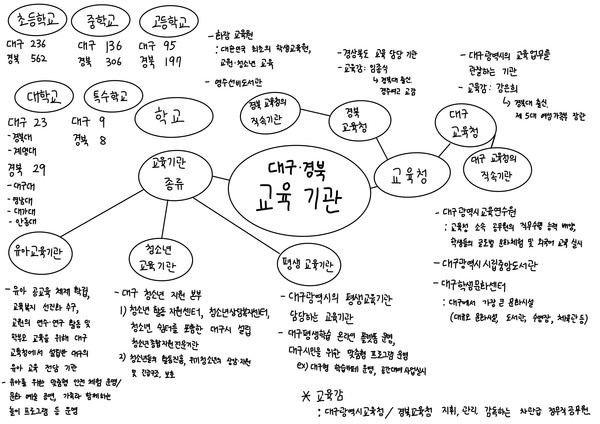 초등학교
대구 236
경북 562
중학교
대구 136
경북 306
고등학교
대구 95
경북 197
대학교
대구 23
- 경북대
- 계명대
경북 29
- 대구대
- 영남대
- 대가대
- 안동대
특수학교
대구 9
경북 8
학교
- 화랑 교육원
: 대한민국 최초의 학생교육원,
교원·청소년 교육
- 영주선비도서관
경북 교육청의
직속기관
경북
교육청
- 경상북도 교육 담당 기관
- 교육감 : 임종식
↳ 경북대 출신,
- 대구광역시의 교육업무를
관장하는 기관
- 교육감 : 강은희
↳ 경북대 출신,
제 5대 여성가족부 장관
대구
교육청
대구 교육청의
직속기관
교육청
대구·경북
교육 기관
교육기관
종류
- 대구광역시교육연수원
: 교육청 소속 공무원의 직무수행 능력 배양,
학생들의 글로벌 문화체험 및 외국어 교육 실시
- 대구광역시 시립중앙도서관
- 대구학생문화센터
: 대구에서 가장 큰 문화시설
(대규모 문화시설, 도서관, 수영장, 체육관 등)
유아교육기관
- 유아 공교육 체제 확립,
교육복지 선진화 추구,
교원의 연수·연구 활동 및
학부모 교육을 위해 대구
교육청에서 설립한 대구의
유아 교육 전담 기관
- 유아를 위한 맞춤형 안전 체험 운영/
문화 예술 공연, 가족과 함께하는
놀이 프로그램 등 운영
청소년
교육기관
- 대구 청소년 지원 본부
1) 청소년 활동 지원센터, 청소년상담복지센터,
청소년 쉼터를 포함한 대구시 설립
청소년종합지원전문기관
2) 청소년들의 활동진흥, 위기청소년의 상담·지원
및 긴급구조, 보호
평생 교육기관
- 대구광역시의 평생교육기관
담당하는 교육기관
- 대구평생학습 온라인 플랫폼 운영,
대구시민을 위한 맞춤형 프로그램 운영
ex) 대구형 학습카페 운영, 공간대여 사업실시
※ 교육감
: 대구광역시교육청 / 경북교육청 지휘, 관리, 감독하는 차관급 정무직공무원.